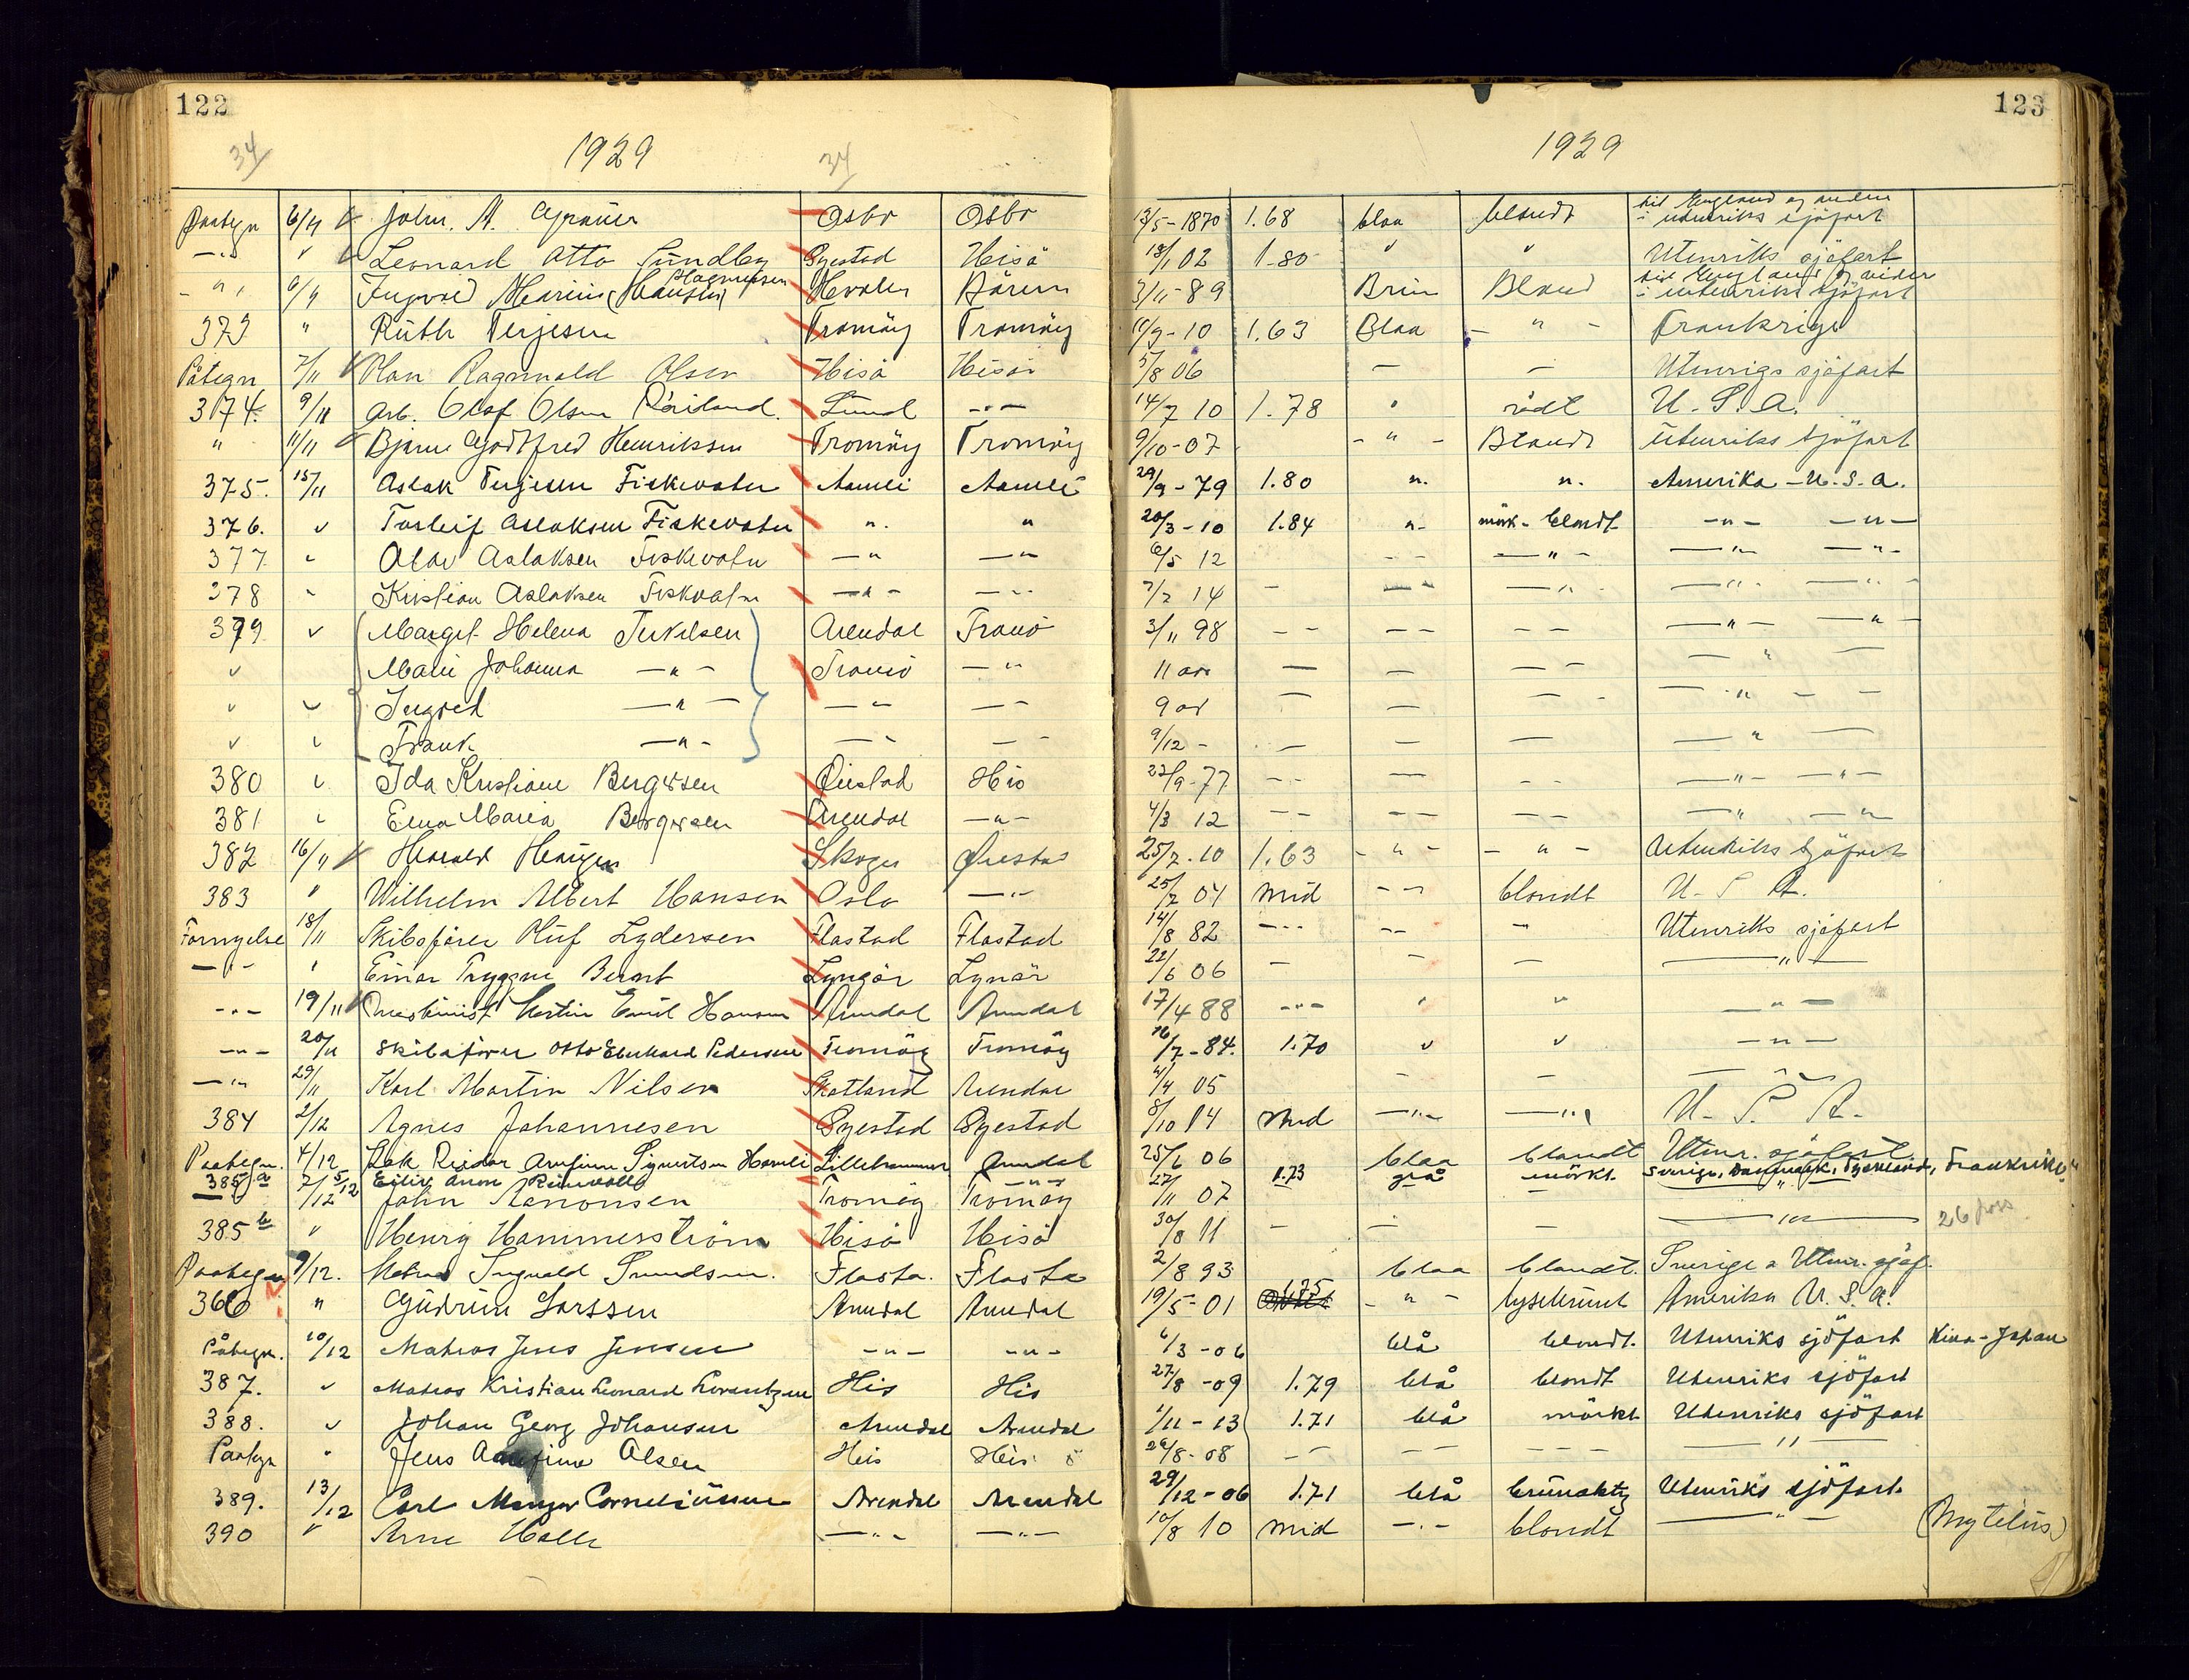 122
123
34
1929
34
1929
Paategn 6/11 John. A. Osbr Osbr 13/5-1870 1.68 blaa blondt til England og videre i utenriks sjøfart
Leonard Otto Sundbey Øyestad Hisö 18/1 02 1.80 " " Utenriks sjøfart
" 6/11 Ingvald Marius (Hansen) Magnussen 3/11-89 Brun Blond til England og videre i utenriks sjöfart
373 " Ruth Terjesen Tromöy Tromöy 11/9-10 1.63 Blaa - " - Frankrige
Påtegn 7/11 Olav Ragnvald Olsen Hisö Hisö 5/8 06 — — Utenrigs sjöfart
374. 9/11 Arb. Olaf Olsen Lund -"- 14/7 10 1.78 " rödt U.S.A.
" 11/11 Bjarne Godtfred Henriksen Tromöy Tromöy 9/10-07 - " - Blondt utenriks sjöfart
375. 15/11 Aslak Terjesen Fiskevatn Aamli Aamli 29/9-79 1.80 ". ". Amerika - U.S.A.
376. " Torleif Aslaksen Fiskevatn ". " 20/3-10 1.84 "- mörk-blondt -"- -"-
377 " Olav Aslaksen Fiskvatn —" —" 6/5 12 - - —"- —"- —"-
378 " Kristian Aslaksen Fiskvatn —"- —"- 7/7 14 - —"- —"- —"- —"-
379 " Margit Helena Terkelsen Arendal Tromö 3/11 98 - - - - - - —"- —"-
" Marie Johanna —"- Tromö —" 11 aar — — — - — " —
" " Ingrid —"— —" — - 9 ar — — — - — " — —
" " Frank —"- —" — - 9/12 - — — — — " —
380 " Ida Kristiane Bergersen Øiestad His 22/9-77 - - — - - —"- —"-
381 " Elna Maria Bergersen Arendal —"- 4/3 12 - - - - - - —" —"
382 16/11 Harald Skoger Øiestad 25/7-10 1.63 - " - - " - Utenriks sjöfart
383 " Wilhelm Albert Hansen Oslo —"- 25/7 04 mid - - blondt U.S.A.
Fornyelse 18/11 Skibsfører Oluf Lydersen Flastad Flastad 14/8 82 -"- - - -" Utenriks sjöfart
—"- " Einar Tryggve Bernt Lyngör Lynör 22/6 06 — - — —"—
-"- 19/11 Maskinist Martin Emil Hansen Arendal Arendal 17/4 88 -"- " " —"—
—"- 20/11 Skibsförer Otto Eberhard Pedersen Tromöy Tromöy 16/7-84. 1.70 " " —"—
—"- 29/11 Karl Martin Nilsen Skotland Arendal 4/4 05 - — — "
384 2/12 Agnes Johannesen Øyestad Øyestad 8/10 14 Mid —"- —"- U. S. A.
Paategn. 4/12 Reidar Arnfinn Sigurdsen Lillehammer Arendal 25/6 06 blaa blondt Utenr. sjøfart.
385 a 5/12 Eilif Aron -"- 1.73 grå mörkt. Sverige, Danmark, Tyskland, Frankrike
— 7/12 John Aanonsen Tromöy Tromöy 27/11 07 — "
385 b " Henry Hammerström Hisö Hisö 30/8 11 — — — —"— 26
Paategn 9/12. Matros Ingvald Flosta. Flosta 2/8 93 blaa blondt. Sverige o Utenr. sjøf.
366 " Gudrun Larssen Arendal Arendal 19/5-01 1.75 - " - lysebrunt Amerika U.S.A.
Påtegn. 10/12 Matros Jens Jensen -"- -"- 6/3-06 blå blondt. Utenriks sjöfart Kina-Japan
387. " Matros Kristian Leonard Lorentzen His His 27/8-09 1.79 blå blondt Utenriks sjöfart
388. " Johan Georg Johansen Arendal Arendal 1/11-13 1.71 blå mörkt Utenriks sjöfart
Paategn " Jens Olsen His His 26/8-08 — - — — - - - —"—
389. 13/12 Carl Corneliussen Arendal Arendal 29/12-06 1.71 blå brunaktig Utenriks sjöfart.
390 " Arne Holle —"- —"— 10/8 10 mid -"- blondt —"— (Mytelus)